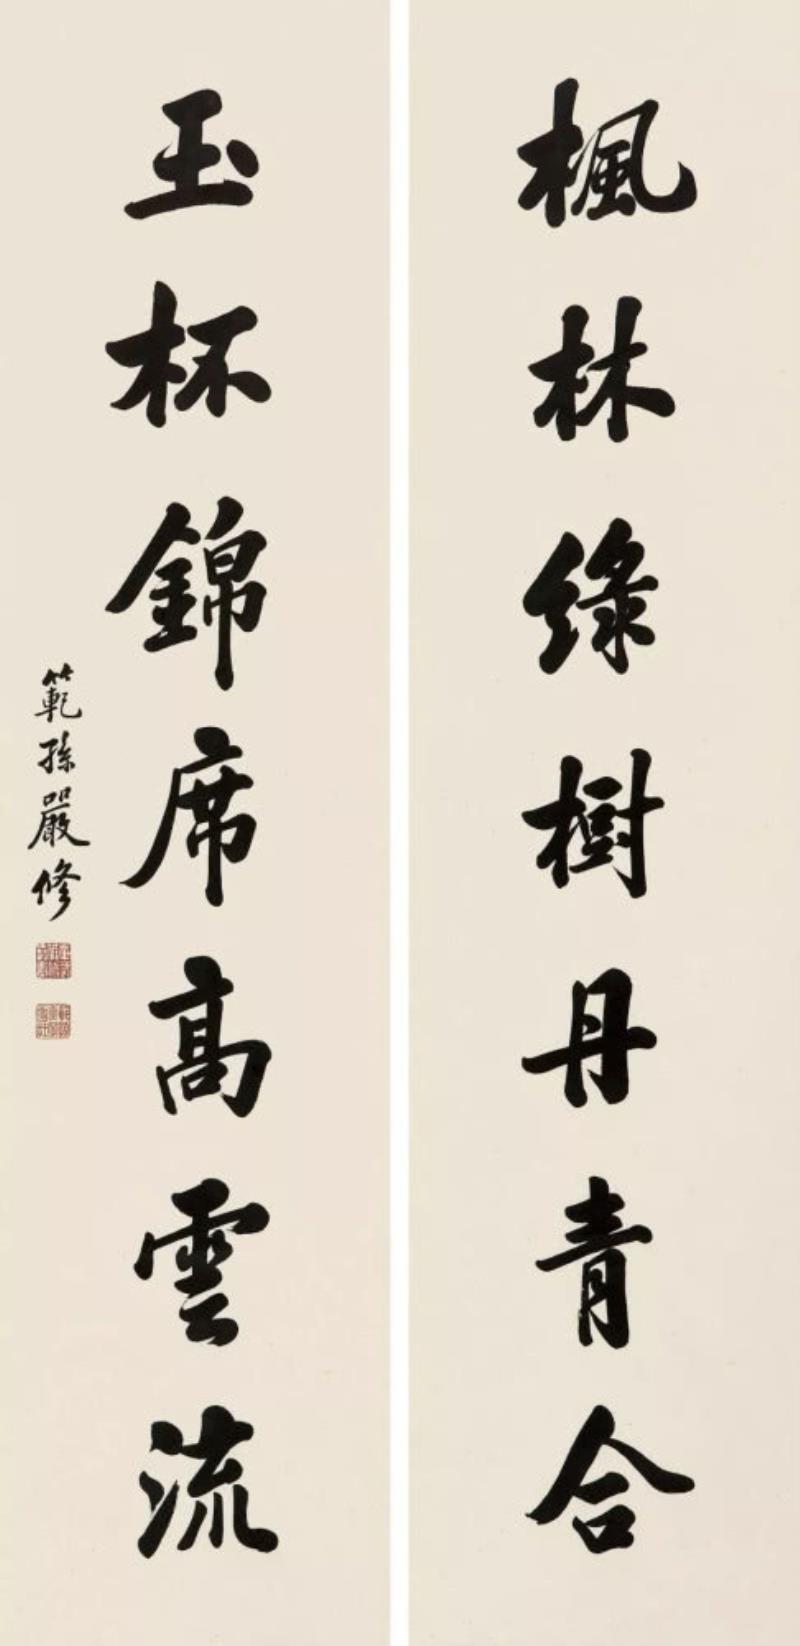 楓林綠樹丹青合
玉杯錦席高雲流
範孫嚴修